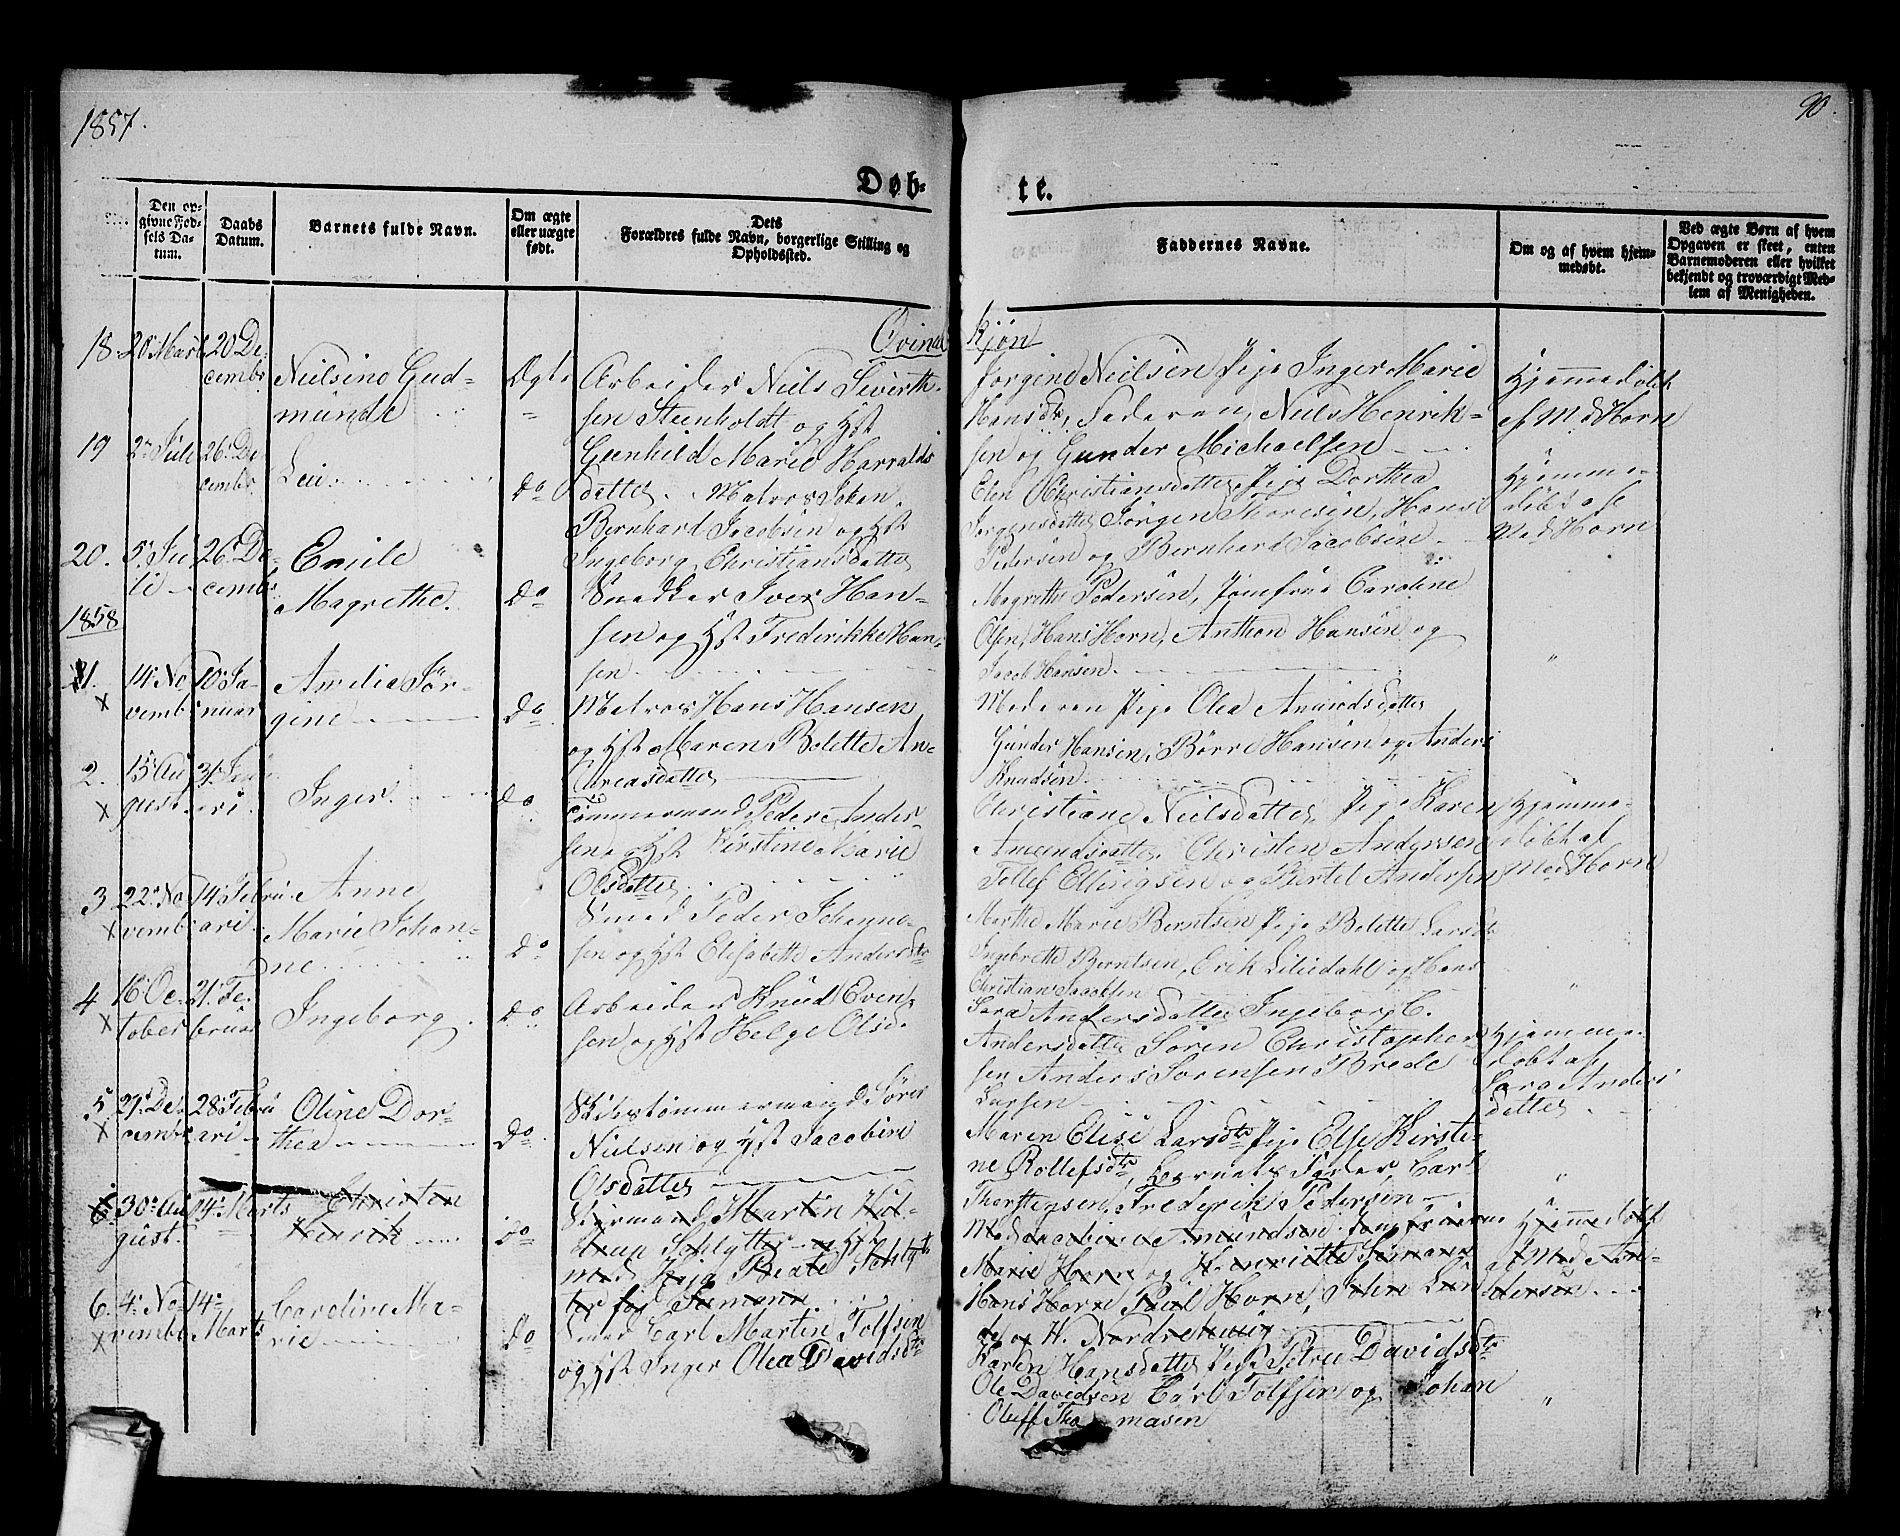 1857.
90.
Døb-
te.
Den op-
givne Fød-
sels Da-
tum.
Daabs
Datum.
Barnets fulde Navn.
Om ægte
eller uægte
født.
Dets
Forældres fulde Navn, borgerlige Stilling og
Opholdssted.
Faddernes Navne.
Om og af hvem hjem-
medøbt.
Ved ægte Børn af hvem
Opgaven er skeet, enten
Barnemoderen eller hvilket
bekjendt og troværdigt Med-
lem af Menigheden.
Qvinde
Kjøn
18 20 Marts 20 De-
cembr
Nielsine Gud-
munde
Ægte
Arbeider Niels Siverth-
sen Steenholdt og Hst
Gunhild Marie Harralds
datter
Jorgine Nielsen Pige Inger Marie
Hansdr, Faderen, Niels Henrik-
sen og Gunder Michaelsen
Hjemmedøbt
af Md Horn
19 2 Juli 26 De-
cembr
do
Matros Johan
Bernhard Jacobsen og Hst
Ingeborg Christiansdatter
Elen Christiansdatter, Pige Dorthea
Jørgensdatter Jørgen Thoresen, Hans
Pedersen og Bernhard Jacobsen
Hjemme-
døbt af
Md Horn
20. 5 Ju-
li
26 De-
cembr
Emile
Magrethe.
do
Snedker Iver Han-
sen og Hst Frederikke Han-
sen
Magrethe Pedersen, Jomfrue Caroline
Olsen, Hans Horn, Anthon Hansen og
Jacob Hansen.
1858
1. 14 No-
vembr
10 Ja-
nuar
Amelia Jør-
gine
do
Matros Hans Hansen
og Hst Maren Bolette An-
dreasdatter
Moderen Pige Olea Amundsdatter
Gunder Hansen, Børre Hansen og Anders
Knudsen
2. 15 Au-
gust
31 Janu-
ari
Inger.
do
Tømmermand Peder Ander-
sen og Hst Kirstine Marie
Olsdatter
Christiane Nielsdatter, Pige Karen
Amundsdatter Christen Andersen
Tollef Ellingsen og Bertel Andersen
Hjemme-
døbt af
Md Horn
3 22 No-
vembr
14 Febru-
ari
Anne
Marie Johan-
ne
do
Smed Peder Johanne-
sen og Hst Elisabette Andersdr
Marthe Marie Berntsen Pige Bolette Larsdr
Ingebrette Berntsen, Erik Liliedahl og Hans
Christian Jacobsen
4 16 Oc-
tober
21 Fe-
bruar
Ingeborg.
do
Arbeider Knud Even-
sen og Hst Helge Olsd.
Sara Andersdatter Ingeborg C.
Andersdatter Søren Christopher-
sen Anders Sørensen Brede
Larsen
Hjemme-
døbt af
Sara Anders-
datter
5 29 De-
cembr
28 Febru-
ari
Oline Dor-
thea
do
Skibstømmermand Søren
Nielsen og Hst Jacobine
Olsdatter
Maren Elise Larsdr Pige Else Kirsti-
ne Rollefsdr, Carl
Thorstensen, Frederik Pedersen
6 30 Au-
gust.
14 Marts
Christen
Henrik
do
Styrmand Martin
Schlytter og Hst
Mad Kaja Beate Schlyt-
ter fød Semann
Mad Jacobine Amundsen Jomfruerne
Marie Horn og Henriette Semann
Hans Horn Paul Horn, John Lun-
de og H.
Hjemmedøbt
af Mad An-
dersen
6. 4 No-
vembr
14
Marts
Caroline Ma-
rie
do
Smed Carl Martin Tolfsen
og Hst Inger Olea Davidsdr
Karen Hansdatter Pige Petrea Davidsdr
Ole Davidsen Carl Tolfsen og Johan
Oluff Thomasen